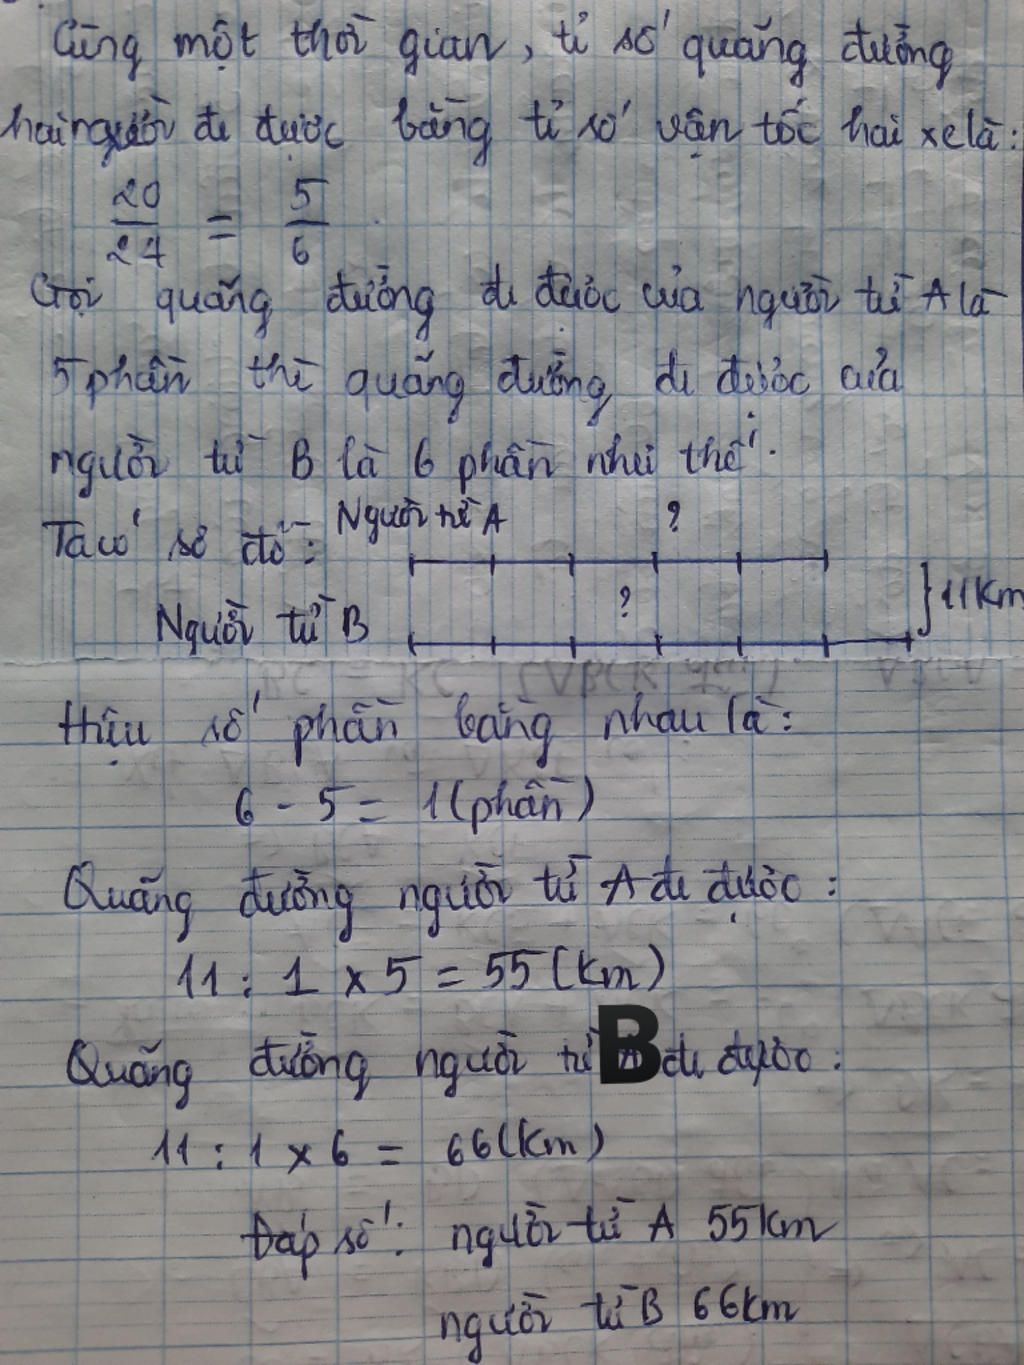 Cùng một thời gian, tỉ số quãng đường
hai người đi được bằng tỉ số vận tốc hai xe là:
20/24 = 5/6
Gọi quãng đường đi được của người từ A là
5 phần thì quãng đường đi được của
người từ B là 6 phần như thế.
Ta có sơ đồ: Người từ A ?
Người từ B ? } 11 km
Hiệu số phần bằng nhau là:
6 - 5 = 1 (phần)
Quãng đường người từ A đi được:
11 : 1 x 5 = 55 (km)
Quãng đường người từ B đi được:
11 : 1 x 6 = 66 (km)
Đáp số: người từ A 55 km
người từ B 66 km